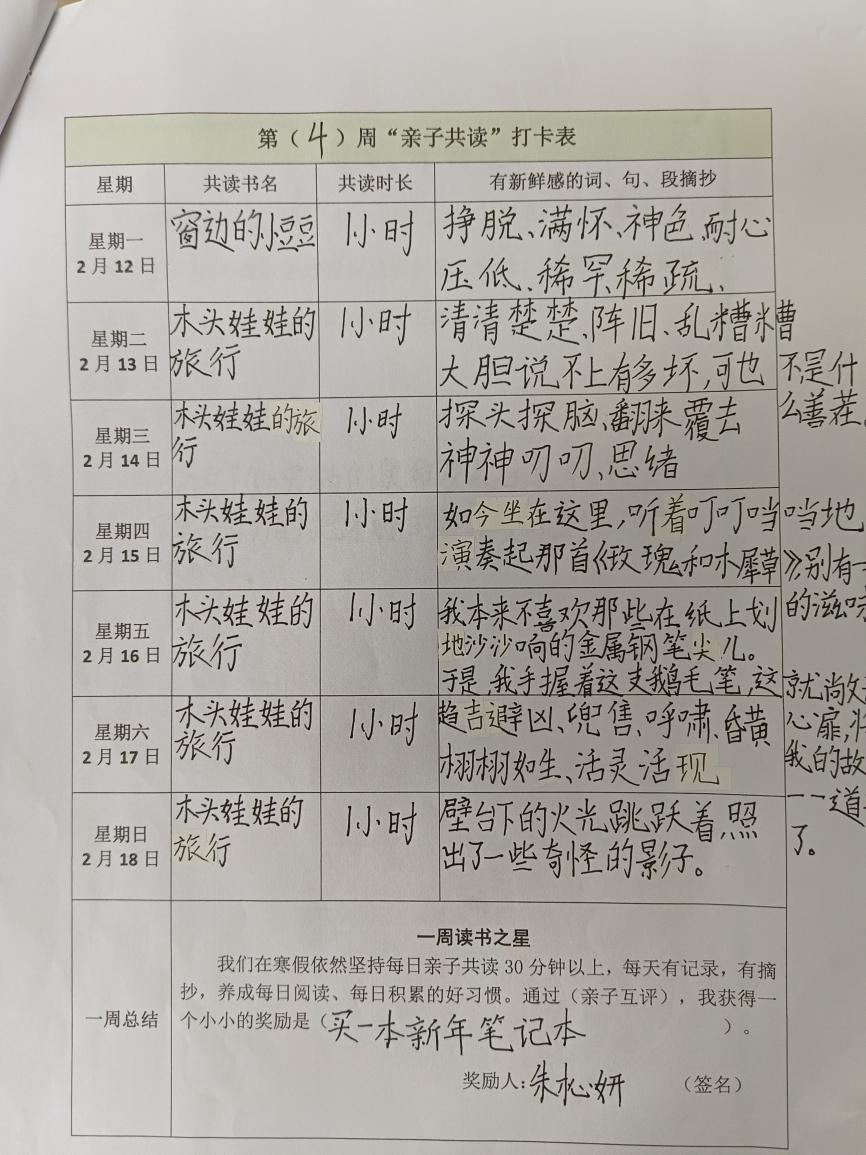 第（4）周“亲子共读”打卡表
星期 共读书名 共读时长 有新鲜感的词、句、段摘抄
星期一
2月12日
窗边的小豆豆
1小时
挣脱、满怀、神色、耐心
压低、稀罕、稀疏、
星期二
2月13日
木头娃娃的
旅行
1小时
清清楚楚、阵旧、乱糟糟
大胆说不上有多坏,可也不是什
么善茬。
星期三
2月14日
木头娃娃的旅
行
1小时
探头探脑、翻来覆去
神神叨叨、思绪
星期四
2月15日
木头娃娃的
旅行
1小时
如今坐在这里,听着叮叮当当地
演奏起那首《玫瑰和木犀草》,别有一
的滋味
星期五
2月16日
木头娃娃的
旅行
1小时
我本来不喜欢那些在纸上划
地沙沙响的金属钢笔尖儿。
于是,我手握着这支鹅毛笔,这
就尚
心扉,将
我的故
一一道
了。
星期六
2月17日
木头娃娃的
旅行
1小时
趋吉避凶、兜售、呼啸、昏黄
栩栩如生、活灵活现
星期日
2月18日
木头娃娃的
旅行
1小时
壁台下的火光跳跃着,照
出了一些奇怪的影子。
一周总结
一周读书之星
我们在寒假依然坚持每日亲子共读30分钟以上，每天有记录，有摘
抄，养成每日阅读、每日积累的好习惯。通过（亲子互评），我获得一
个小小的奖励是（买一本新年笔记本）。
奖励人：朱松妍（签名）